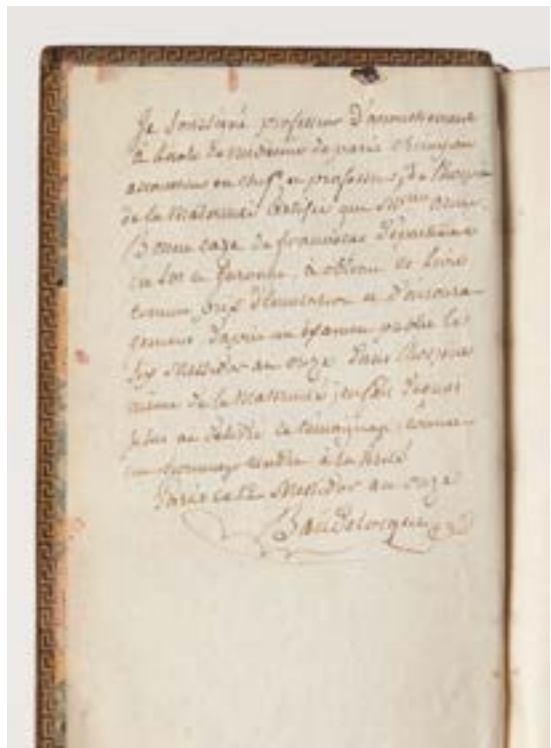 Je soussigné professeur d'accouchement
à l'école de médecine de paris chirurgien
accoucheur en chef, et professeur, de l'hospice
de la maternité certifie que Mme anne
Bonne caze de francescas Département
du Lot et Garonne, a obtenu ce livre
comme prix d'émulation et d'encoura-
gement d'après un examen public le
Messidor an onze dans l'hospice
même de la Maternité; en foi de quoi
je lui ai délivré ce témoignage, comme
un hommage rendu à la vérité
Paris ce 12 Messidor an onze
Baudelocque